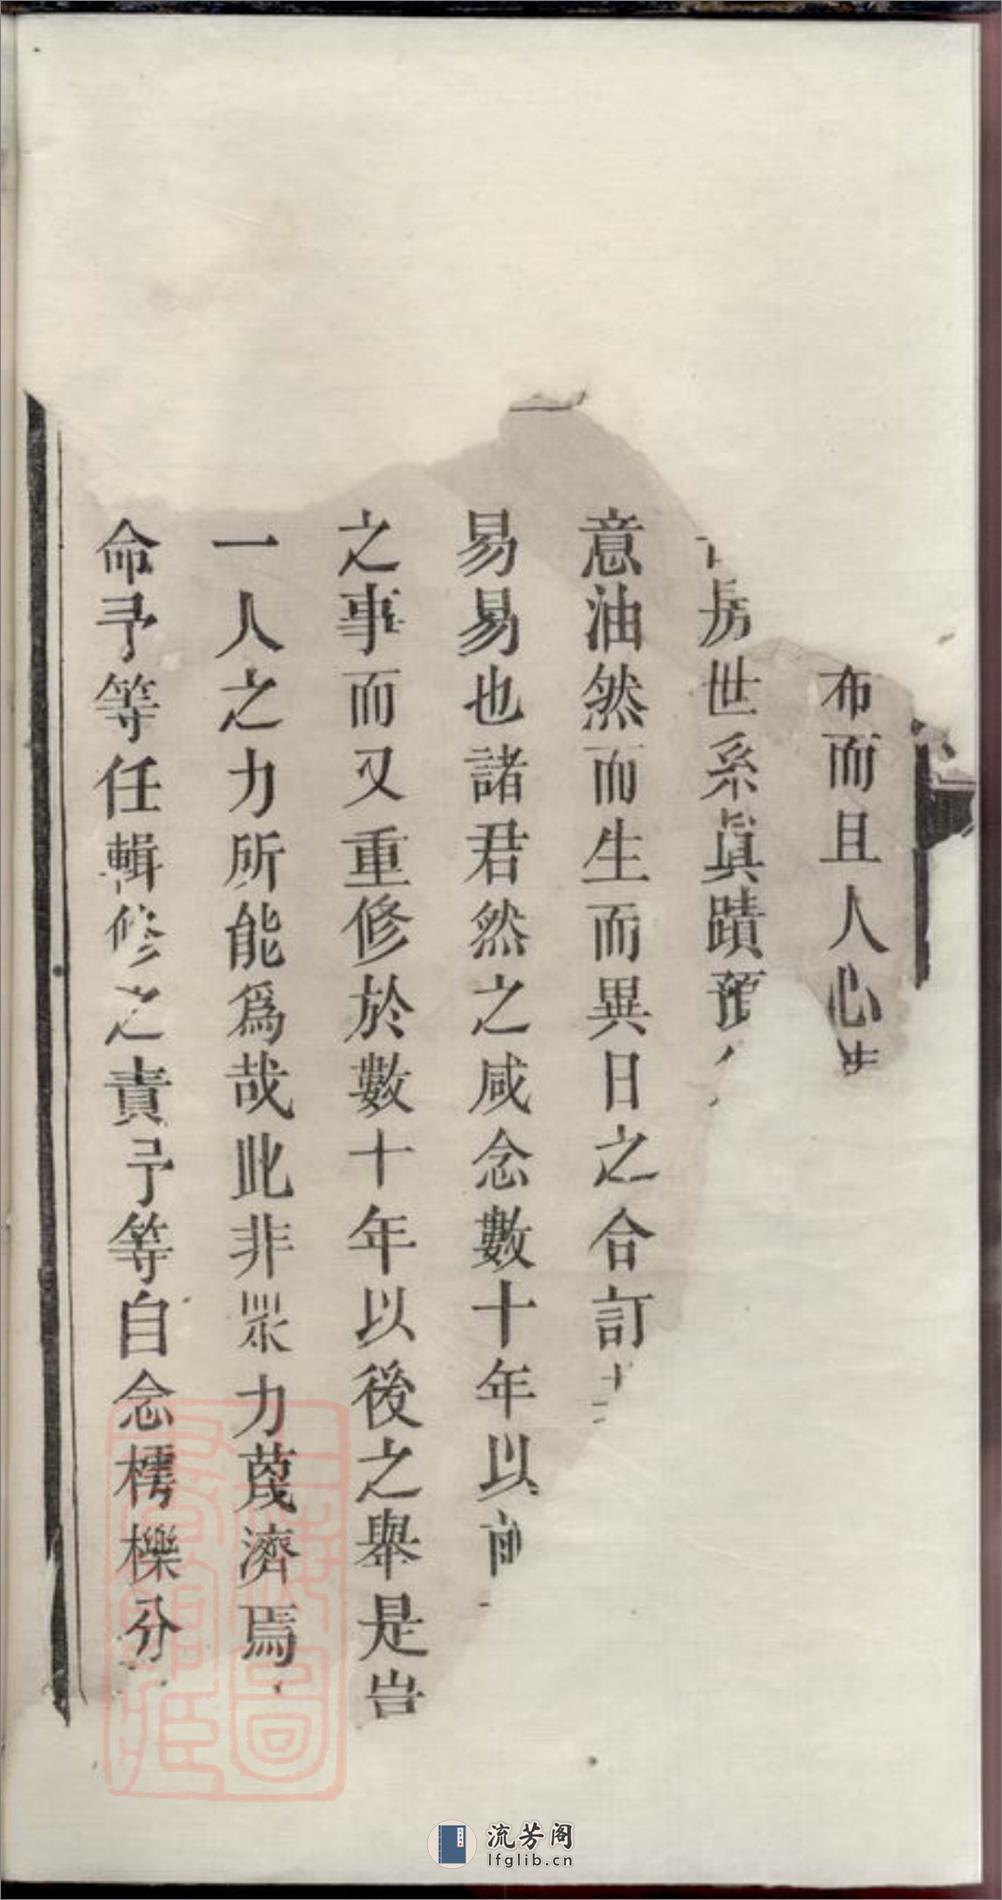 布而且人心
房世系眞蹟預
意油然而生而異日之合訂
易易也諸君然之咸念數十年以前
之事而又重修於數十年以後之舉是豈
一人之力所能爲哉此非眾力蔑濟焉
命予等任輯修之責予等自念樗櫟分
流芳阁
lfglib.cn